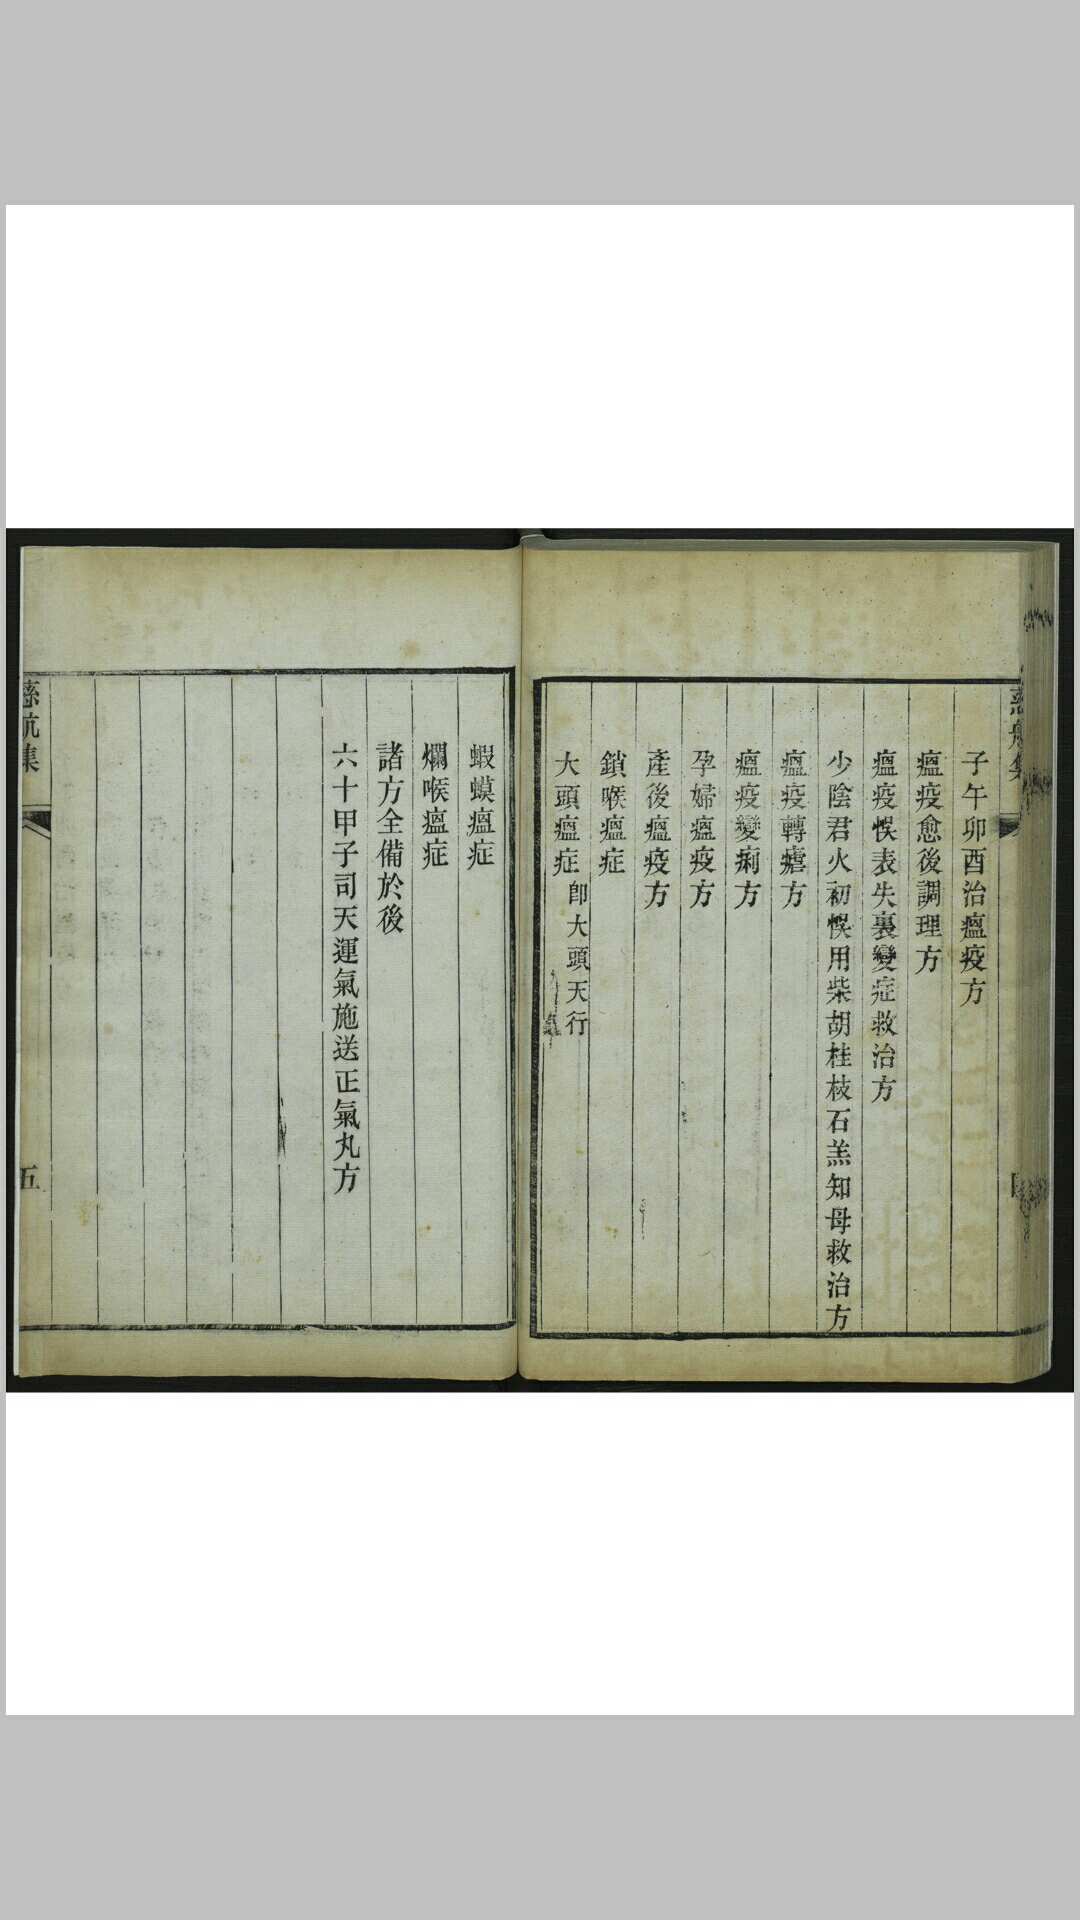 子午卯酉治瘟疫方
瘟疫愈後調理方
瘟疫悞表失裏變症救治方
少陰君火初悞用柴胡桂枝石羔知母救治方
瘟疫轉瘧方
瘟疫變痢方
孕婦瘟疫方
產後瘟疫方
鎖喉瘟症
大頭瘟症 即大頭天行
蝦蟆瘟症
爛喉瘟症
諸方全備於後
六十甲子司天運氣施送正氣丸方
慈航集
五